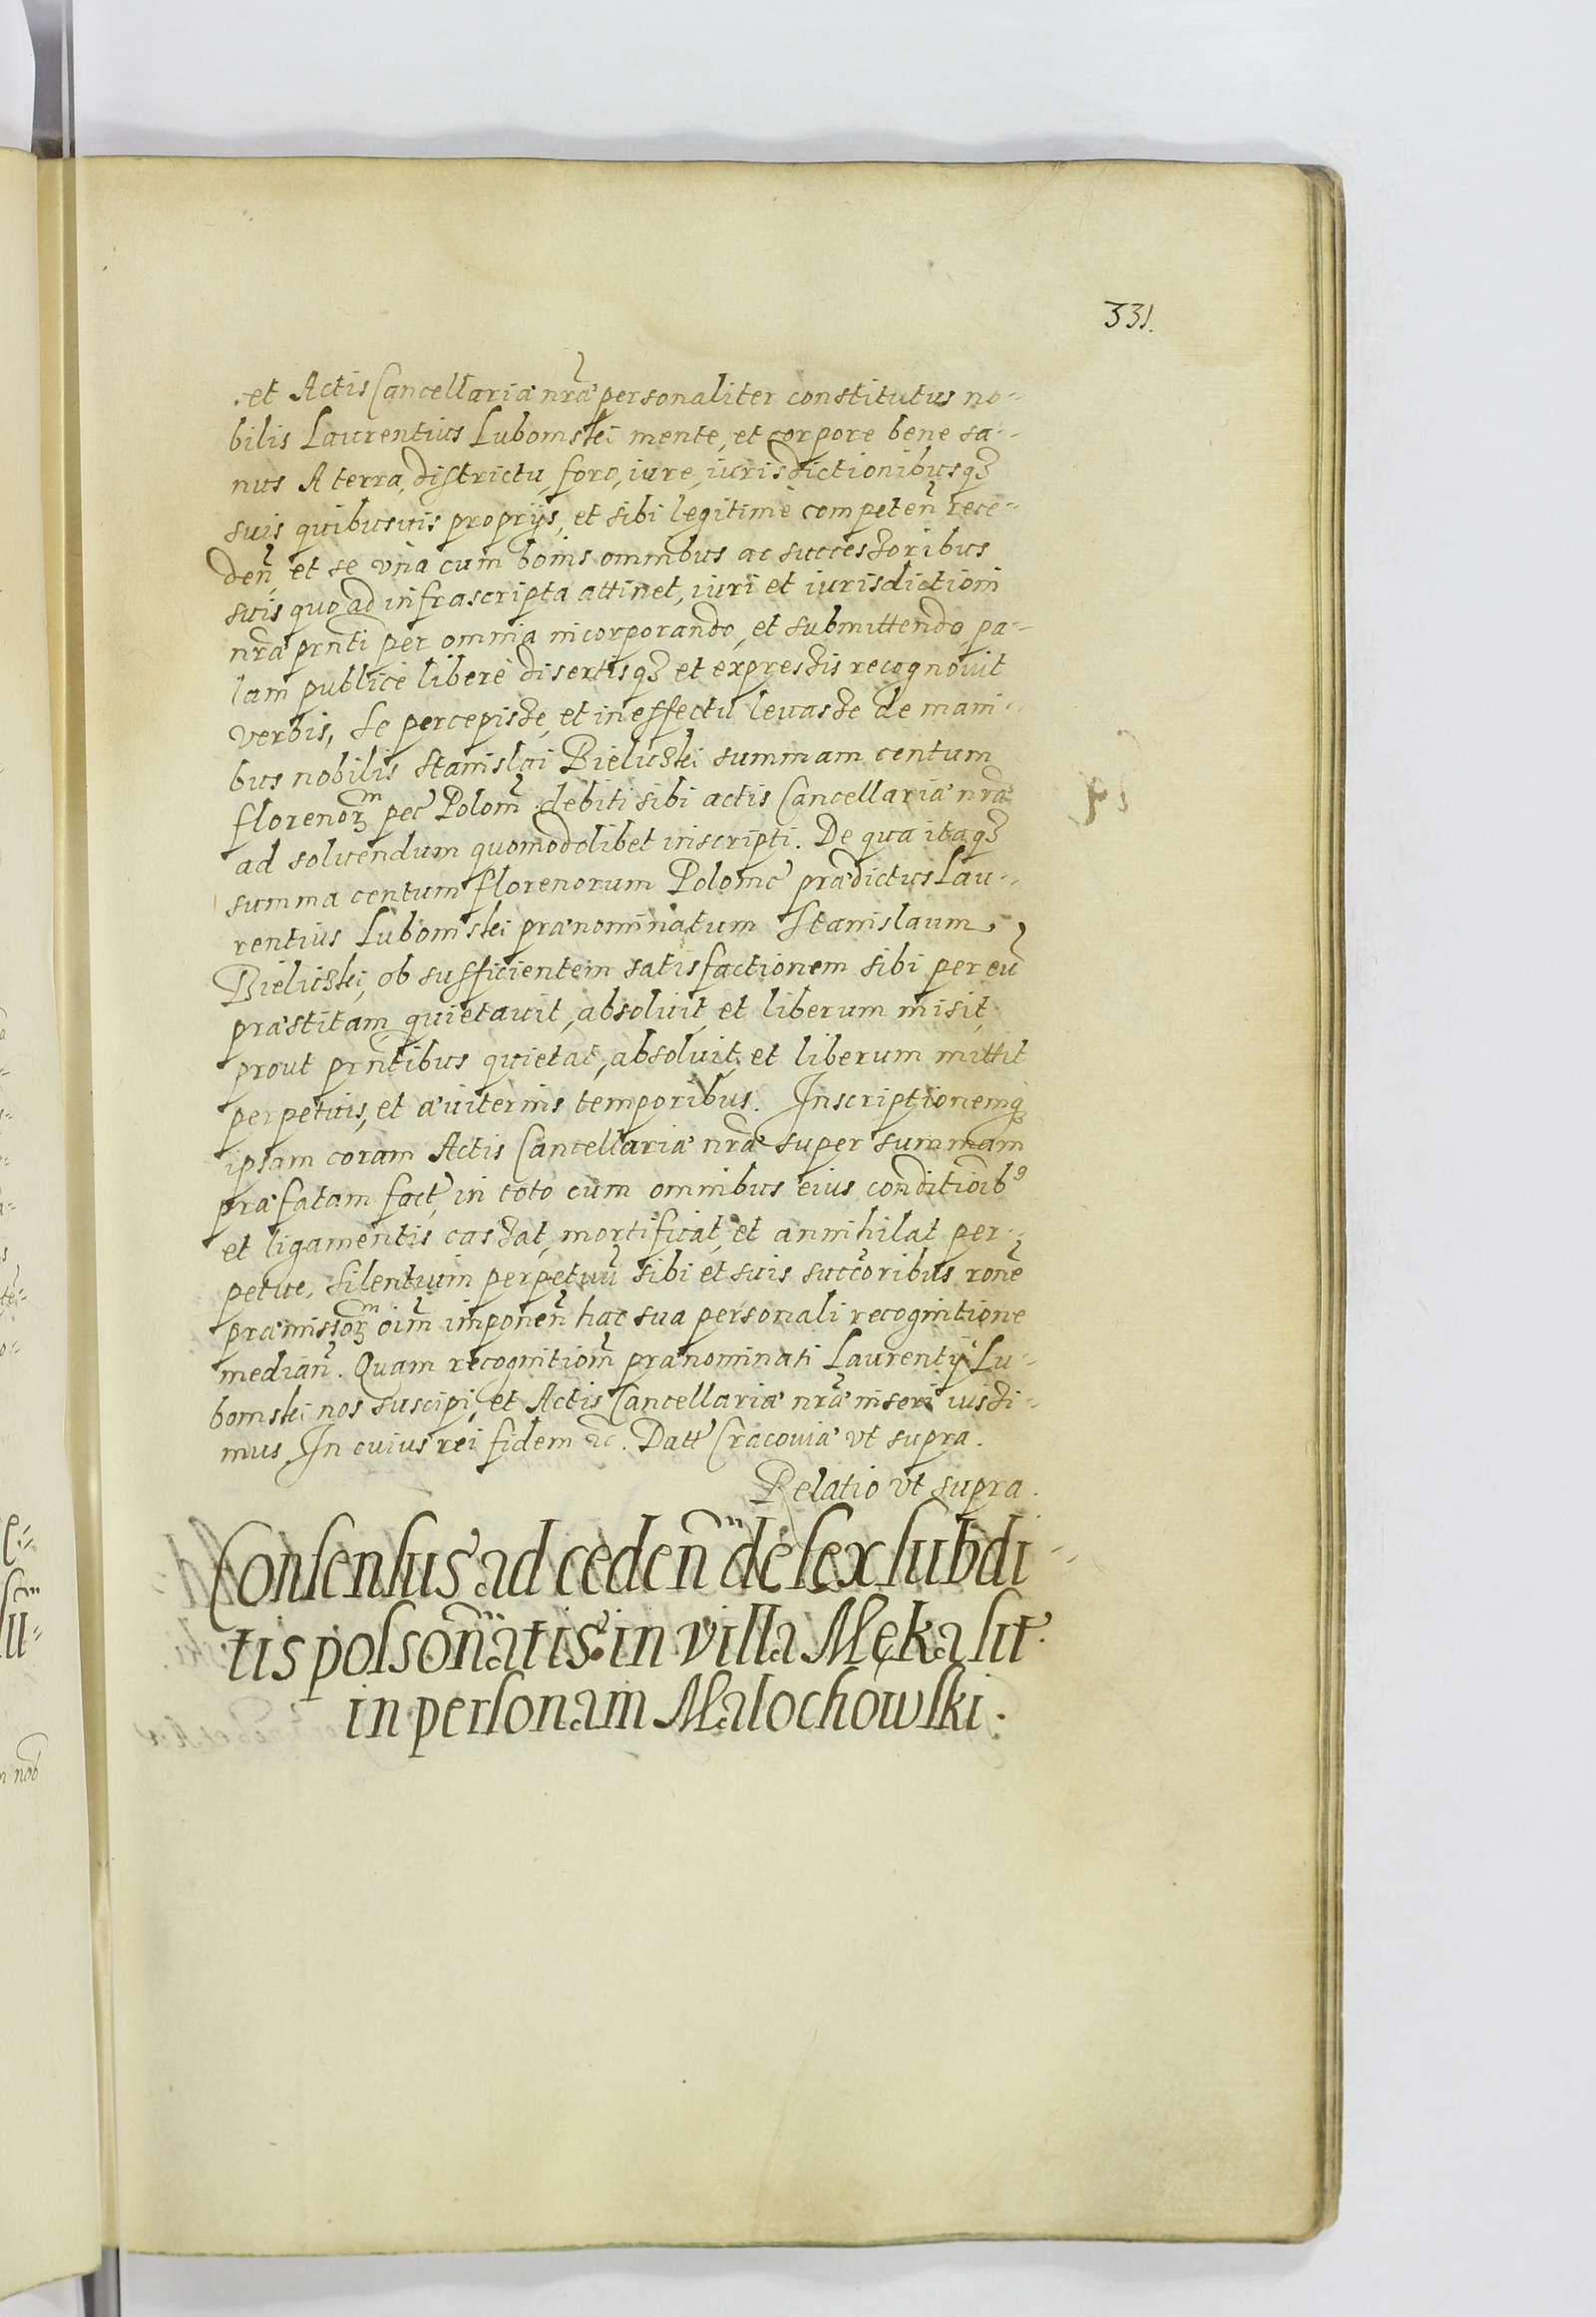 331.
et Actis Cancellariæ nr̃æ personaliter constitutus no-
bilis Laurentius Lubomski mente, et corpore bene sa-
nus A terra, districtu, foro, iure, iurisdictionibusq3
suis quibusuis proprijs, et sibi legitimè competen̄ rece-
den̄ et se vna cum bonis omnibus ac successoribus
suis quo ad infrascripta attinet, iuri et iurisdictioni
nr̃æ prn̄ti per omnia incorporando, et submittendo pa-
lam publicè liberè disertisq3 et expressis recognouit
verbis, se percepisse, et in effectu leuasse de mani-
bus nobilis Stanislai Bieliczki summam centum
florenor̄m pec̄ Polon̄ debiti sibi actis Cancellariæ nr̃æ
ad soluendum quomodolibet inscripti. De qua itaq3
summa centum florenorum Polonic̄ prædictus Lau-
rentius Lubomski prænominatum Stanislaum
Bieliczki, ob sufficientem satisfactionem sibi per eū
præstitam quietauit, absoluit, et liberum misit,
prout prn̄tibus quietat, absoluit, et liberum mittit
perpetuis, et æuiternis temporibus. Inscriptionemq3
ipsam coram Actis Cancellariæ nr̃æ super summam
præfatam fact̄, in toto cum omnibus eius conditioīb9
et ligamentis cassat, mortificat, et annihilat per-
petue, Silentium perpetuū sibi et suis succ̄oribus ron̄e
præmissor̄m oīm imponen̄ hac sua personali recognitione
median̄. Quam recognition̄ prænominati Laurentij Lu-
bomski nos suscipi, et Actis Cancellariæ nr̃æ inseri iussi-
mus. In cuius rei fidem &c. Datt̄ Cracouiæ vt supra.
Relatio vt supra.
Consensus ad ceden̄ de sex subdi-
tis polsonatis in villa Męka sit
in personam Malochowski.